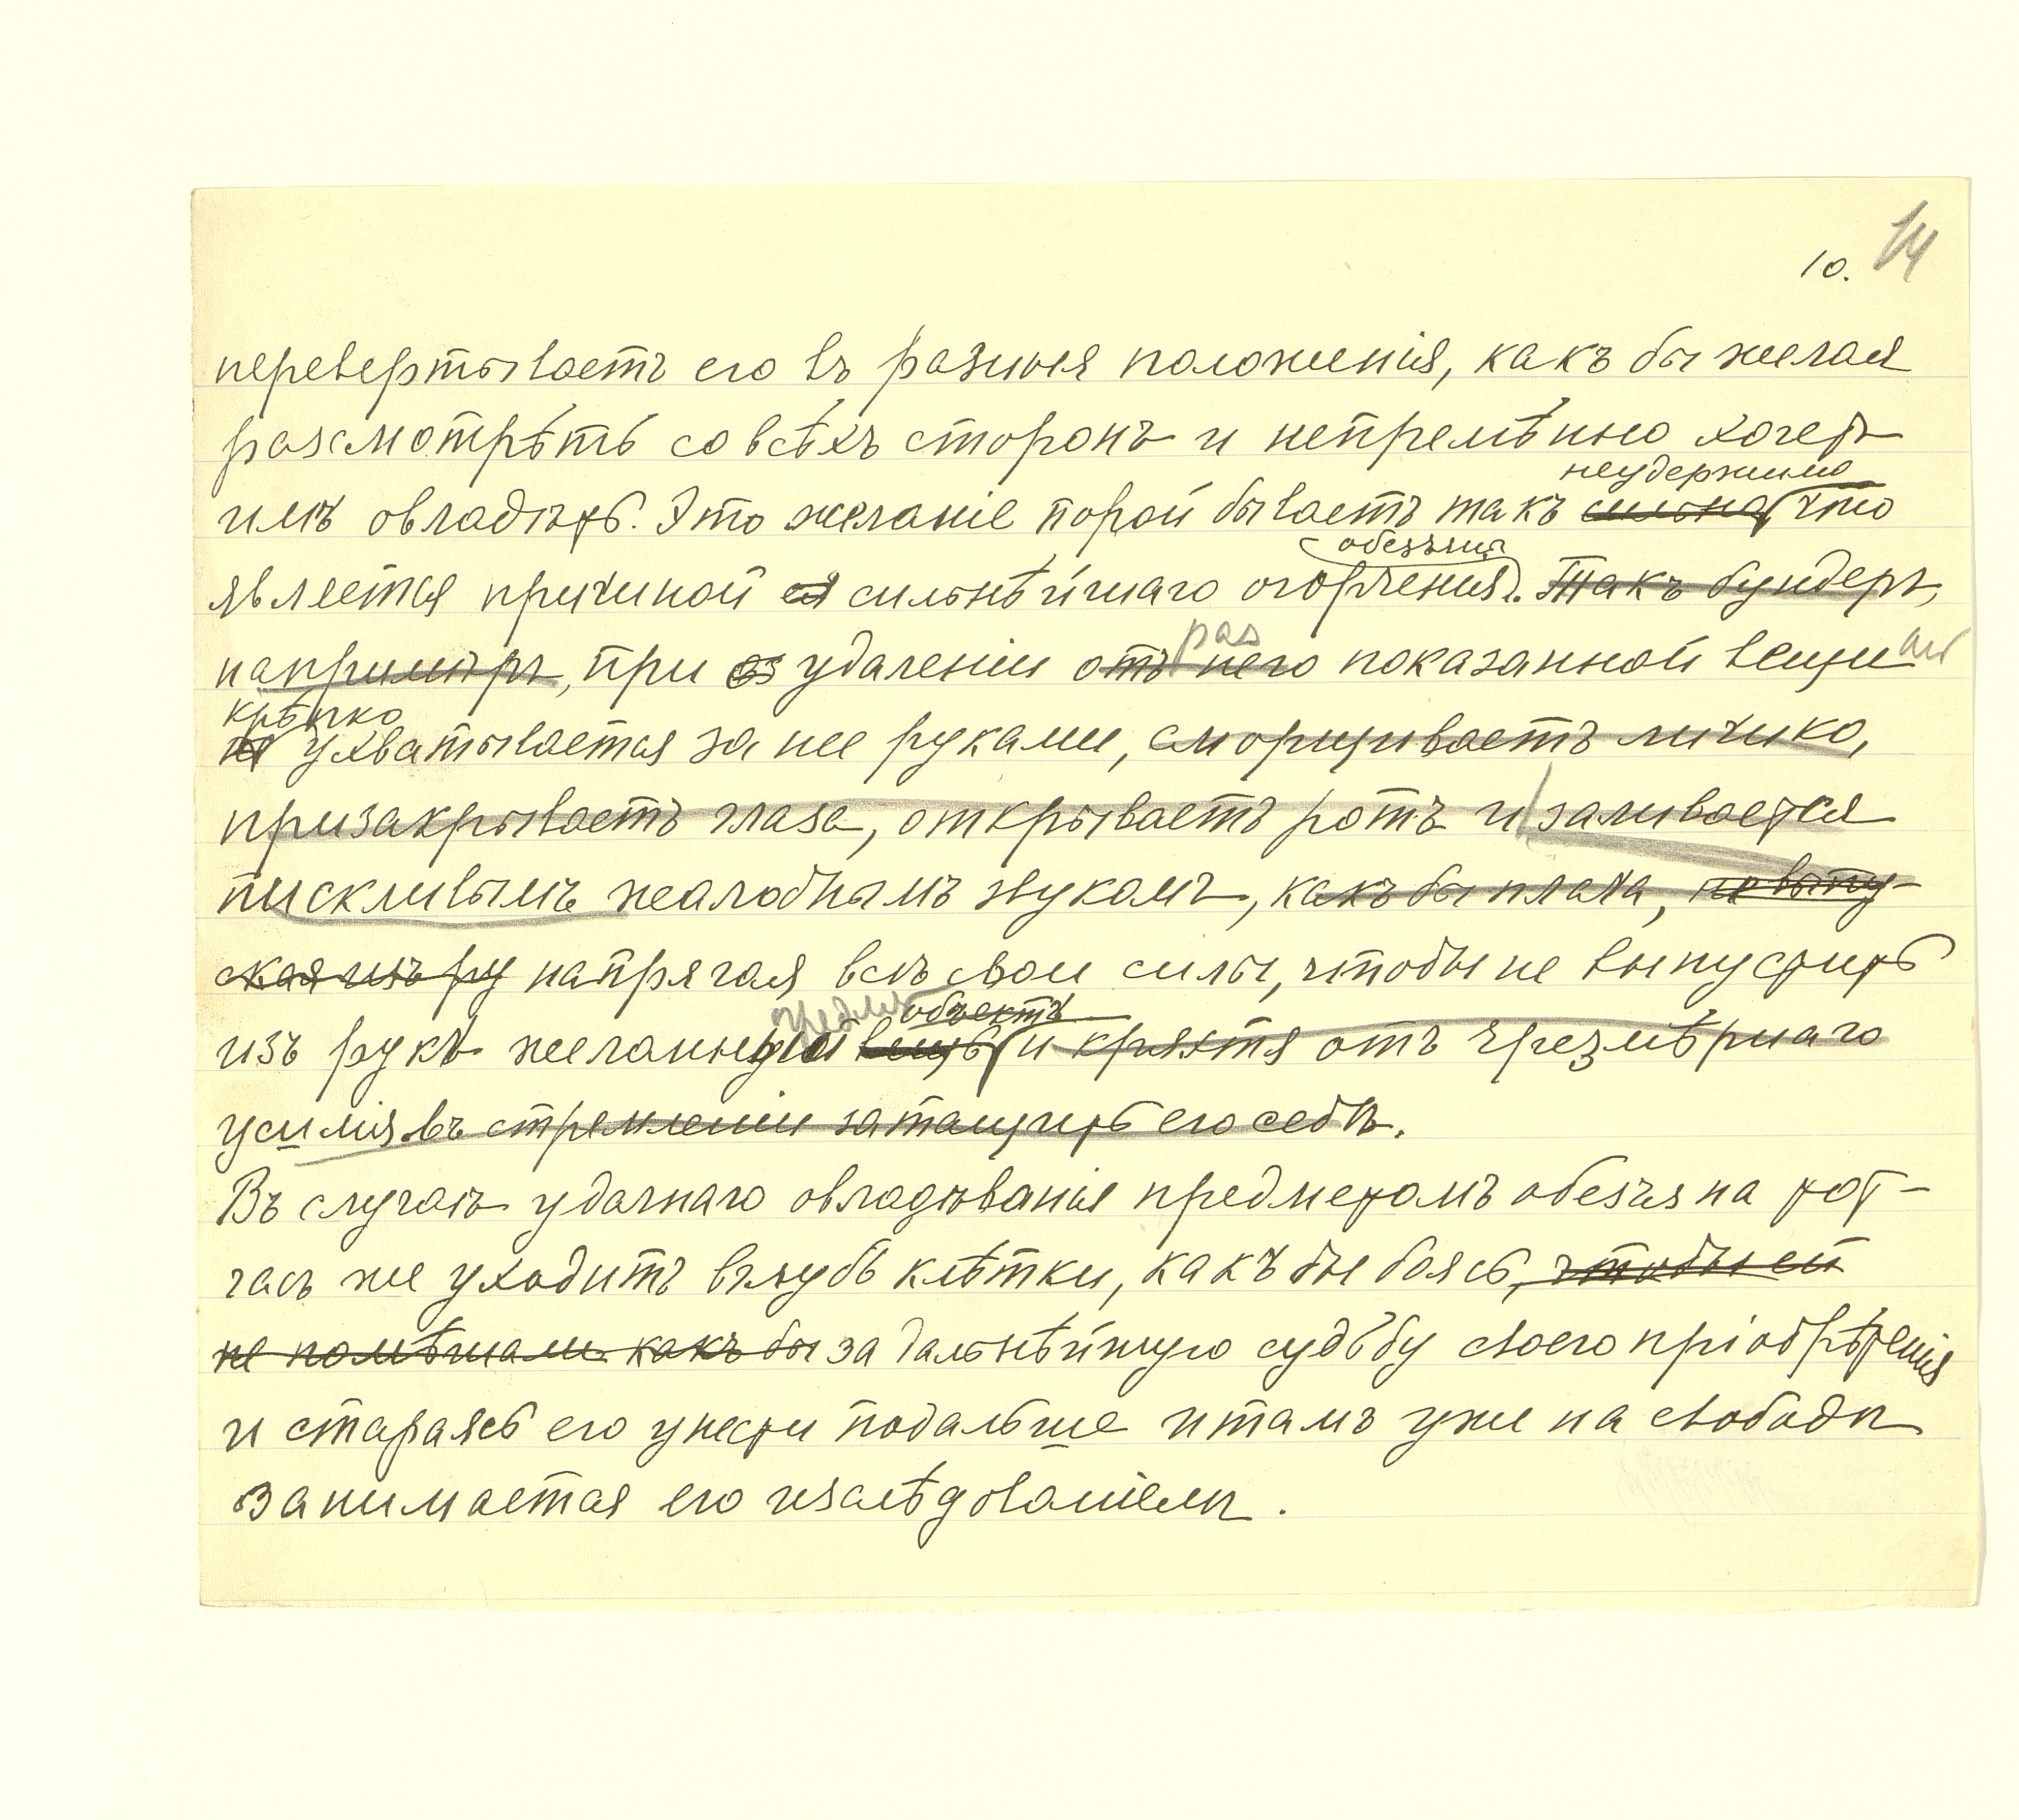 10. 14
перевертываетъ его въ разныя положенія, какъ бы желая
разсмотрѣть со всѣхъ сторонъ и непремѣнно хочетъ
неудержимо
имъ овладѣть. Это желаніе порой бываетъ такъ сильно, что
обезьяны
является причиной ея сильнѣйшаго огорченія. Такъ бундеръ,
раз
напримѣръ, при удаленіи отъ него показанной вещи
крѣпко
ухватывается за нее руками, сморщиваетъ личико,
призакрываетъ глаза, открываетъ ротъ и заливается
пискливымъ жалобнымъ звукомъ, какъ бы плача, не выпу-
ская изъ ру напрягая всѣ свои силы, чтобы не выпустить
предмет объектъ
изъ рукъ желанный вещь и кряхтя отъ чрезмѣрнаго
усилія въ стремленіи затащить его себѣ.
Въ случаѣ удачнаго овладѣванія предметомъ обезьяна тот-
часъ же уходитъ вглубь клѣтки, какъ бы боясь, чтобы ей
не помѣшали какъ бы за дальнѣйшую судьбу своего пріобрѣтенія
и стараясь его унести подальше и тамъ уже на свободѣ
занимается его изслѣдованіемъ.